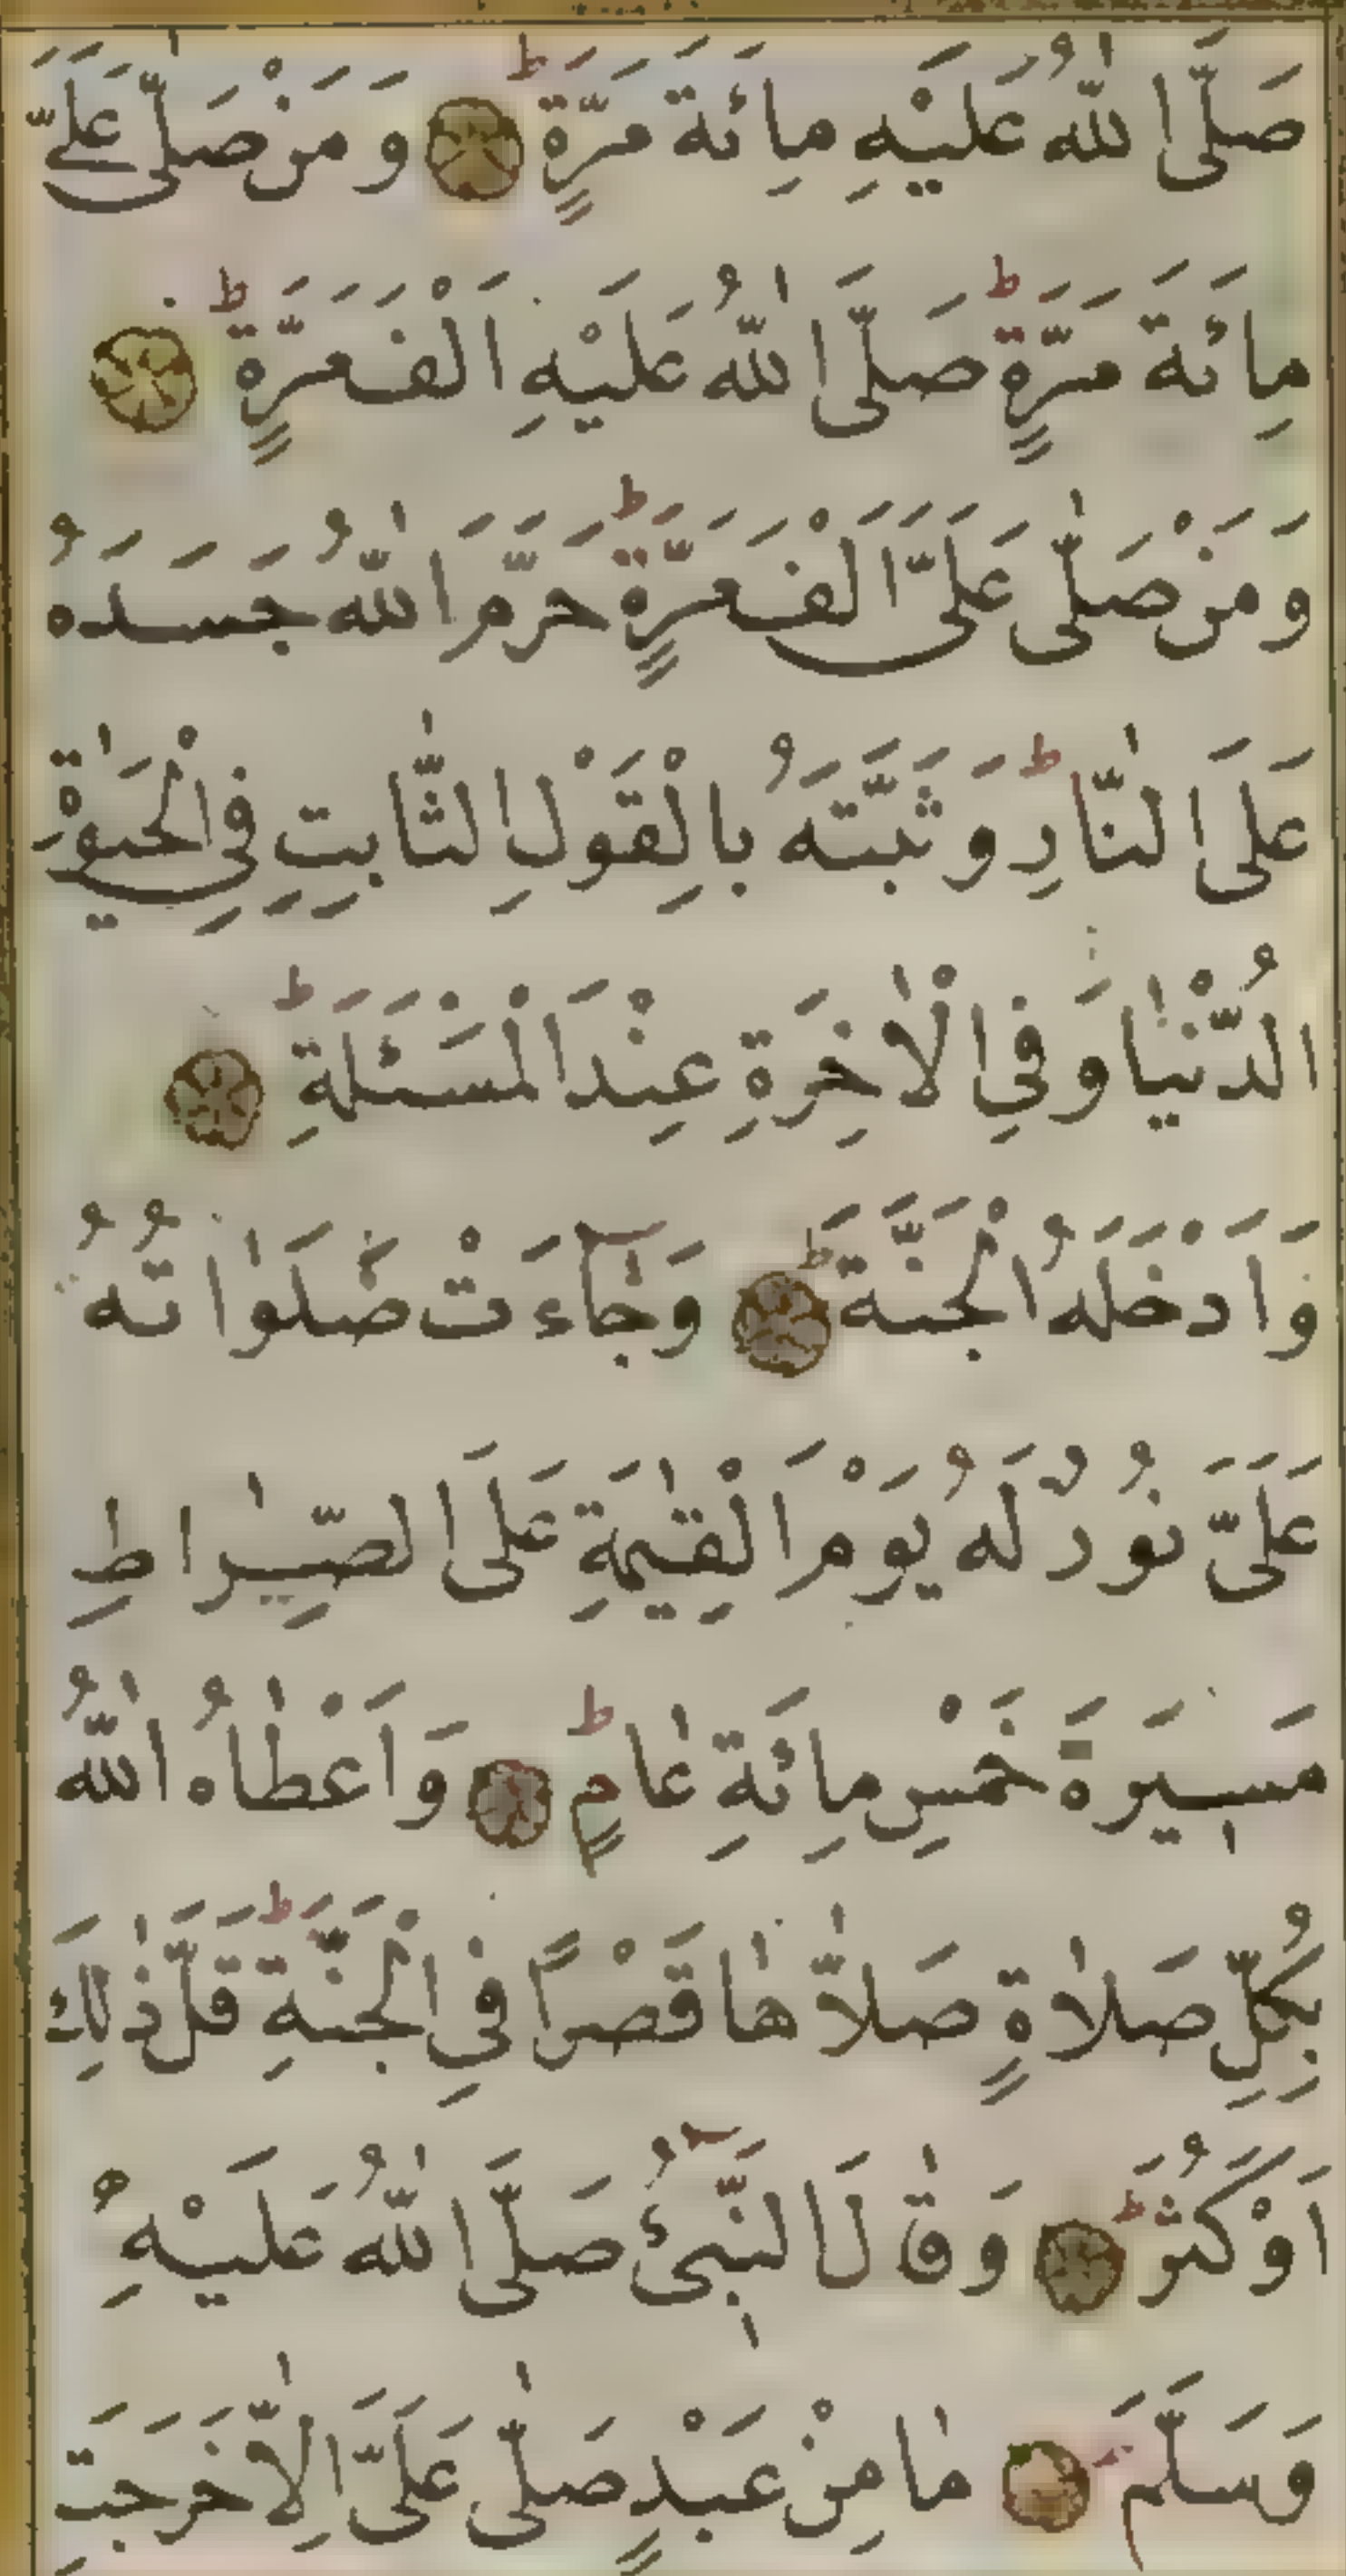 صَلَّى اللهُ عَلَيْهِ مِائَةَ مَرَّةٍ ط وَمَنْ صَلّٰى عَلَىَّ
مِائَةَ مَرَّةٍ ط صَلَّى اللهُ عَلَيْهِ اَلْفَ مَرَّةٍ ط
وَمَنْ صَلّٰى عَلَىَّ اَلْفَ مَرَّةٍ ط حَرَّمَ اللهُ جَسَدَهُ
عَلَى النَّارِ ط وَثَبَّتَهُ بِالْقَوْلِ الثَّابِتِ فِى الْحَيٰوةِ
الدُّنْيَا وَفِى الْاٰخِرَةِ عِنْدَ الْمَسْئَلَةِ ط
وَاَدْخَلَهُ الْجَنَّةَ ط وَجَآءَتْ صَلَوٰاتُهُ
عَلَىَّ نُورٌ لَهُ يَوْمَ الْقِيٰمَةِ عَلَى الصِّرٰاطِ
مَسِيرَةَ خَمْسِ مِائَةِ عَامٍ ط وَاَعْطٰاهُ اللهُ
بِكُلِّ صَلٰاةٍ صَلَّاهٰا قَصْرًا فِى الْجَنَّةِ ط قَلَّ ذٰلِكَ
اَوْ كَثُرَ ط وَقٰلَ النَّبِىُّ صَلَّى اللهُ عَلَيْهِ
وَسَلَّمَ مٰا مِنْ عَبْدٍ صَلّٰى عَلَىَّ اِلّٰا خَرَجَتِ